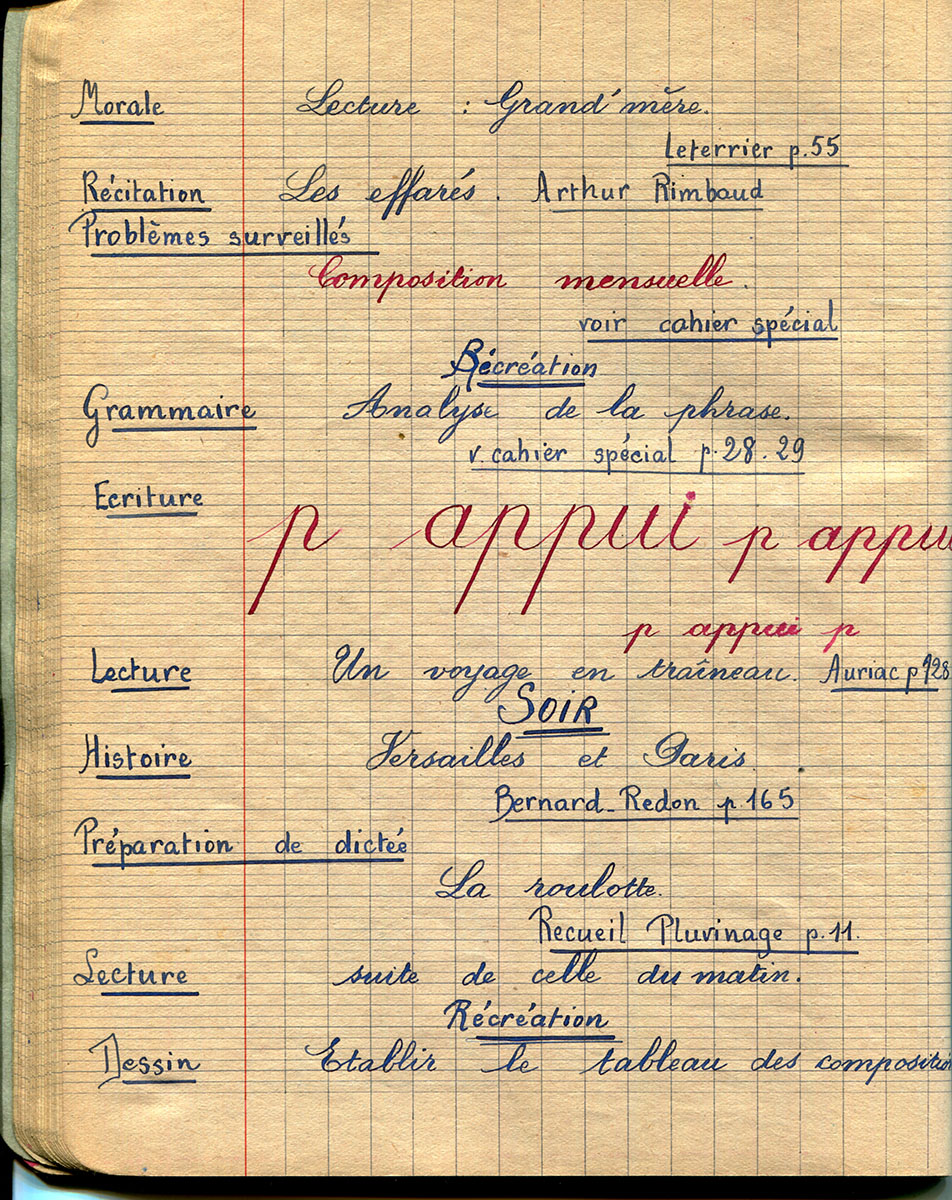 Morale Lecture : Grand'mère.
Leterrier p.55
Récitation Les effarés. Arthur Rimbaud
Problèmes surveillés
Composition mensuelle.
voir cahier spécial
Récréation
Grammaire Analyse de la phrase.
v. cahier spécial p.28.29
Ecriture p appui p appui
p appui p
Lecture Un voyage en traîneau. Auriac p 128
SOIR
Histoire Versailles et Paris.
Bernard-Redon p.165
Préparation de dictée
La roulotte.
Recueil Pluvinage p.11.
Lecture suite de celle du matin.
Récréation
Dessin Etablir le tableau des composition